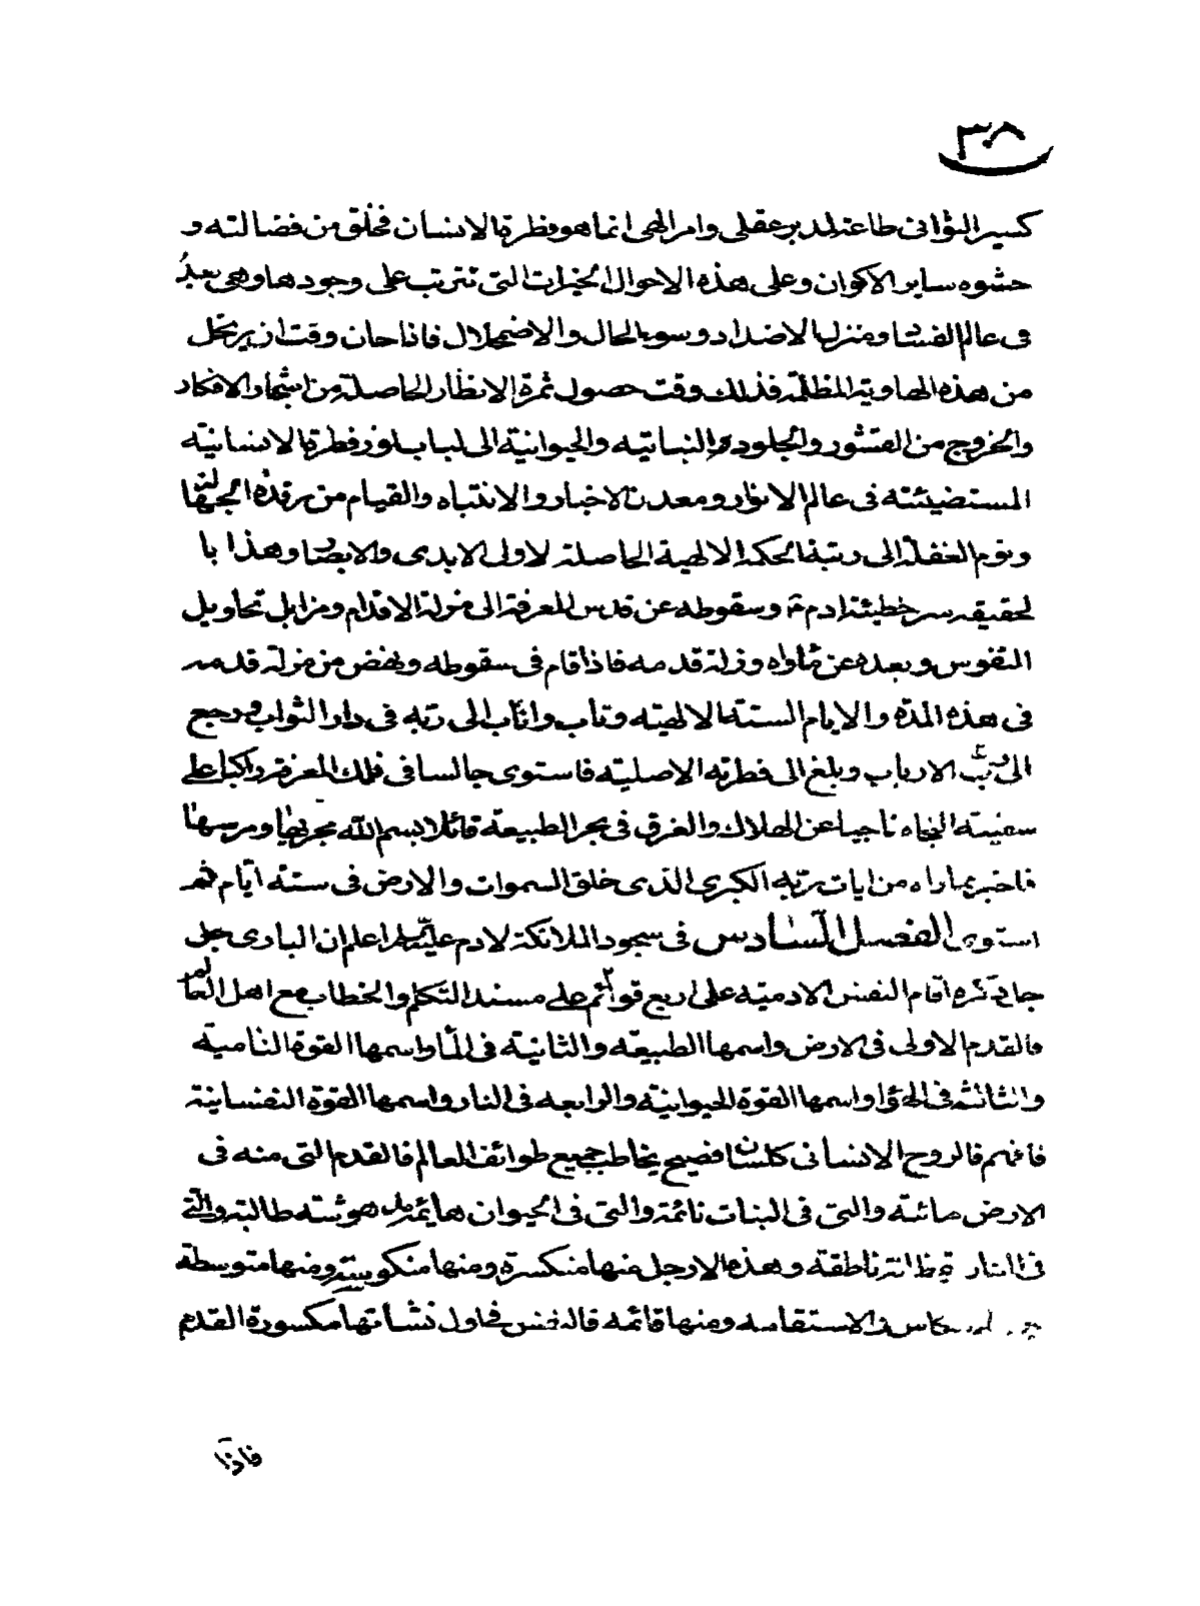 ٣٨
كسير الثوانى طاعة لمدبر عقلى وامر الهى انما هو فطرة الانسان فخلق من فضالته و
حشوه ساير الاكوان وعلى هذه الاحوال الخيرات التى تترتب على وجودها وهى بعد
فى عالم الفساد ومنزل الاضداد وسوء الحال والاضمحلال فاذا حان وقت ان يرتحل
من هذه الهاوية المظلمة فذلك وقت حصول ثمرة الانظار الحاصلة من اشجار الافكار
والخروج من القشور والجلود النباتيه والحيوانية الى لباب نور فطرة الانسانية
المستضيئة فى عالم الانوار ومعدن الاخبار والانتباه والقيام من مرقدة الجهالة
ونوم الغفلة الى رتبة الحكمة الالهية الحاصلة لاولى الايدى والابصار وهذا با
لحقيقه سر خطيئة ادم ع وسقوطه عن قدس المعرفة الى مزلة الاقدام ومزابل تحاويل
النفوس وبعده عن مأواه وزلة قدمه فاذا قام فى سقوطه ونهض من مزلة قدمه
فى هذه المدة والايام الستة الالهيه وتاب واناب الى ربه فى دار الثواب ورجع
الى رب الارباب وبلغ الى فطرته الاصليه فاستوى جالسا فى فلك المعرفة راكبا على
سفينة النجاه ناجيا عن الهلاك والغرق فى بحر الطبيعة قائلا بسم الله مجريها ومرسيها
فاخبر بما راه من ايات ربه الكبرى الذى خلق السموات والارض فى ستة ايام ثم
استوى الفصل السادس فى سجود الملائكة لادم عليه السلام اعلم ان البارى جل
جل ذكره اقام النفس الادميه على اربع قوائم على مسند التكلم والخطاب مع اهل العالم
فالقدم الاولى فى الارض واسمها الطبيعه والثانية فى الماء واسمها القوة الناميه
والثالثة فى الهواء واسمها القوة الحيوانيه والرابعه فى النار واسمها القوة النفسانية
فافهم فالروح الانسانى كلسان فصيح يخاطب جميع طوائف العالم فالقدم التى منه فى
الارض مائتة والتى فى النبات نائمة والتى فى الحيوان هائمة بل هوئته طالبة والتى
فى النار ناطقة وهذه الارجل منها منكسرة ومنها منكوسة ومنها متوسطة
والاستقامه ومنها قائمه فالنفس فى اول نشأتها مكسورة القدم
فاذا